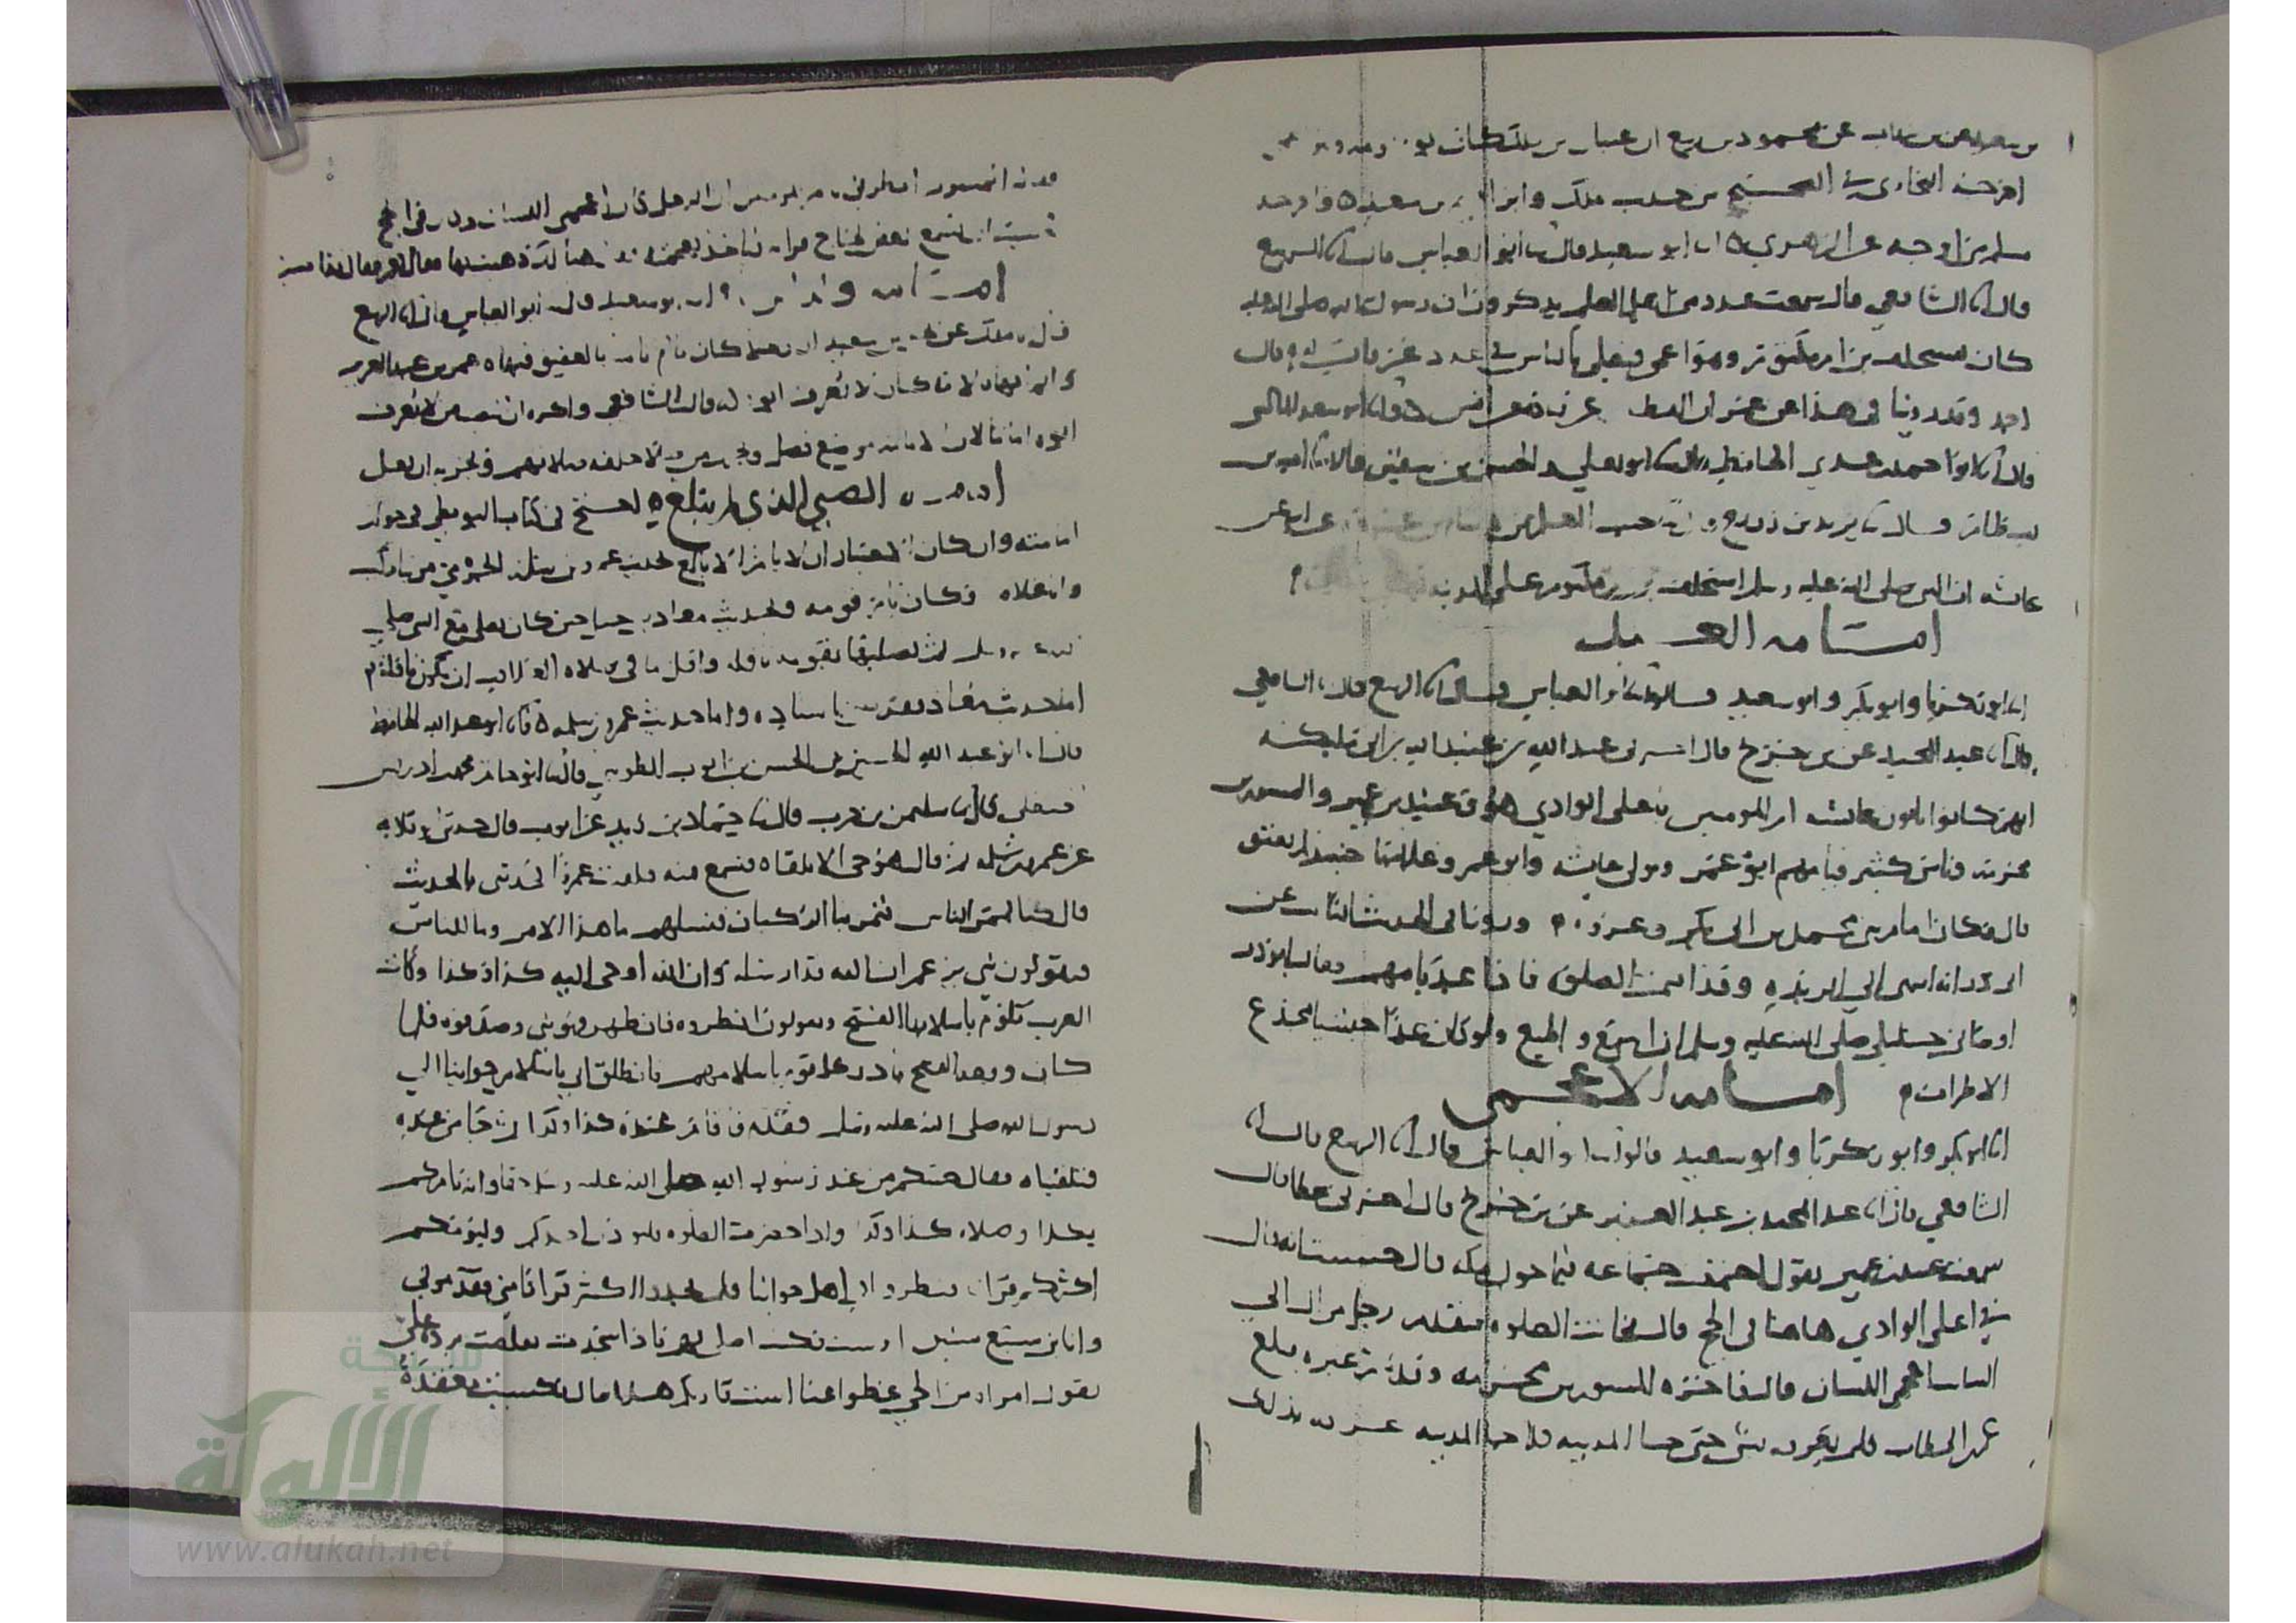 عن محمود بن ربيع ان عتبان بن ملك كان
اخرجه البخاري في الصحيح من حديب ملك وابراهيم بن سعد واخرجه
مسلم من اوجه عن الزهري ابو سعيد قال ابو العباس قال الربيع
قال الشافعي قال سمعت عددا من اهل العلم يذكرون ان رسول الله صلى الله عليه
كان يستخلف بن ام مكتوم وهو اعمى فيصلي بالناس في عدد غزوات له قال
احمد وقد روينا في هذا عن عمران القطان عن قتاده عن انس ابو سعد الماليني
قال ابو احمد بن عدي الحافظ ابو يعلي والحسن بن سفين قالا اميه بن
بسطام قال يزيد بن زريع حبيب المعلم عن هشام بن عروه عن ابيه عن
عائشه ان النبي صلى الله عليه وسلم استخلف بن ام مكتوم على المدينه
امامه العبد
ابو زكريا وابو بكر وابو سعيد قالوا ابو العباس قال الربيع قال الشافعي
قال عبد المجيد عن بن جريج قال اخبرني عبد الله بن عبيد الله بن ابي مليكه
انهم كانوا ياتون عائشه ام المومنين باعلى الوادي هو وعبيد بن عمير والمسور بن
مخرمه وناس كثير فيامهم ابو عمرو مولى عايشه وابو عمرو غلامها حينيذ لم يعتق
قال وكان امام بني محمد بن ابي بكر وعروه وروينا في الحديث الثابت عن
ابي ذر انه انتهى الي الربذه وقد اقيمت الصلوه فاذا عبد يامهم فقال ابو ذر
اوصاني خليلي صلى الله عليه وسلم ان اسمع واطيع ولو كان عبدا حبشيا مجدع
الاطراف امامه الاعجمي
ابو بكر وابو زكريا وابو سعيد قالوا ابو العباس قال الربيع قال
الشافعي قال عبد المجيد بن عبد العزيز عن بن جريج قال اخبرني عطا قال
سمعت عبيد بن عمير يقول اجتمعت جماعه فيما حول مكه قال حسبت انه قال
في اعلى الوادي هاهنا في الحج قال فحانت الصلوه فتقدم رجل من ال ابي
السائب اعجمي اللسان قال فاخره المسور بن مخرمه وقدم غيره فبلغ
عمر بن الخطاب فلم يعرفه بشي حتى جا المدينه فلما جا المدينه عرفه بذلك
فقال المسور انظرني يا امير المومنين ان الرجل كان اعجمي اللسان وكان في الحج
فخشيت ان يسمع بعض الحاج قراته فياخذ بعجمته فقال هنالك ذهبت بها فقال نعم فقال قد اصبت
ابو سعيد قال ابو العباس قال الربيع
ملك عن يحيى بن سعيد ان رجلا كان يام ناسا بالعقيق فنهاه عمر بن عبد العزيز
وانما نهاه لانه كان لا يعرف ابوه قال الشافعي واكره ان ينصب من لا يعرف
ابوه اماما لان الامامه موضع فضل وتجزي من صلا خلفه صلاتهم وتجزيه ان فعل
امامه الصبي الذي لم يبلغ احتج في كتاب البويطي في جواز
امامته وان كان الاختيار ان لا يام الا بالغ بحديث عمرو بن سلمه الجرمي
فكان يام قومه وبحديث معاذ بن جبل حين كان يصلي مع النبي صلى
الله عليه وسلم ثم يصليها بقومه
اما حديث معاذ فقد مضى باسناده واما حديث عمرو بن سلمه ابو عبد الله الحافظ
قال ابو عبد الله الحسين بن الحسن بن ايوب الطوسي قال ابو حاتم محمد بن ادريس
الحنظلي قال سليمن بن حرب قال حماد بن زيد عن ايوب قال حدثني ابو قلابه
عن عمرو بن سلمه ثم قال هو حي الا تلقاه فتسمع منه فلقيت عمرا فحدثني بالحديث
قال كنا بممر الناس فتمر بنا الركبان فنسلهم ما هذا الامر وما للناس
فيقولون نبي يزعم ان الله قد ارسله وان الله اوحى اليه كذا وكذا وكانت
العرب تلوم باسلامها الفتح ويقولون انظروه فان ظهر فهو نبي وصدقوه فلما
كان وقعه الفتح بادر كل قوم باسلامهم فانطلق ابي باسلام حوائنا الي
رسول الله صلى الله عليه وسلم فقدم فاقام عنده كذا وكذا ثم جا من عنده
فتلقيناه فقال جئتكم من عند رسول الله صلى الله عليه وسلم حقا وانه يامركم
بكذا وصلاه كذا وكذا واذا حضرت الصلوه فليوذن احدكم وليؤمكم
اكثركم قرانا فنظروا في اهل حوائنا فلم يجدوا اكثر قرانا مني فقدموني
وانا بن سبع سنين او ست فكنت اصلي بهم فاذا سجدت تقلصت برده علي
تقول امراه من الحي غطوا عنا است قاريكم هذا قال فكسيت معقده
الألوكة
www.alukah.net